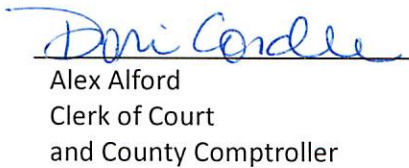 Dori Cordle
Alex Alford
Clerk of Court
and County Comptroller